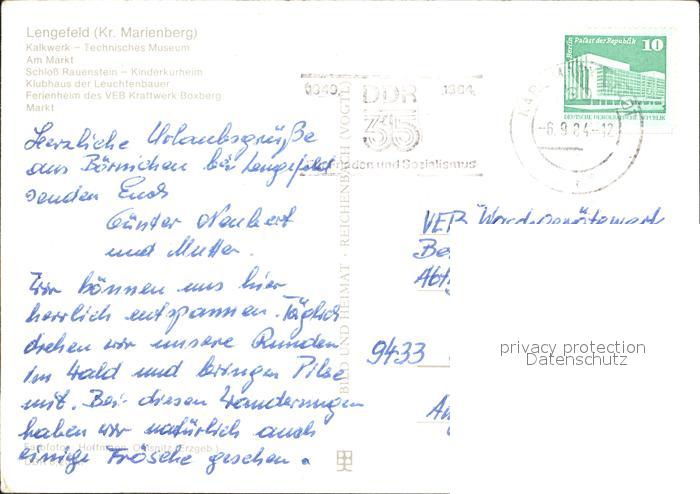 Lengefeld (Kr. Marienberg)
Kalkwerk – Technisches Museum
Am Markt
Schloß Rauenstein – Kinderkurheim
Klubhaus der Leuchtenbauer
Ferienheim des VEB Kraftwerk Boxberg
Markt
Berlin Palast der Republik 10
DEUTSCHE DEMOKRATISCHE REPUBLIK
1949 DDR 1984
35
Frieden und Sozialismus
-6.9.84-12
Herzliche Urlaubsgrüße
aus Börnichen bei Lengefeld
senden Euch
Günter Neubert
und Mutter.
Wir können uns hier
herrlich entspannen. Täglich
drehen wir unsere Runden
im Wald und bringen Pilze
mit. Bei diesen Wanderungen
haben wir natürlich auch
einige Frösche gesehen.
BILD UND HEIMAT · REICHENBACH (VOGTL)
VEB
9433
privacy protection
Datenschutz
Farbfotos: Hoffmann, Oelsnitz (Erzgeb.)